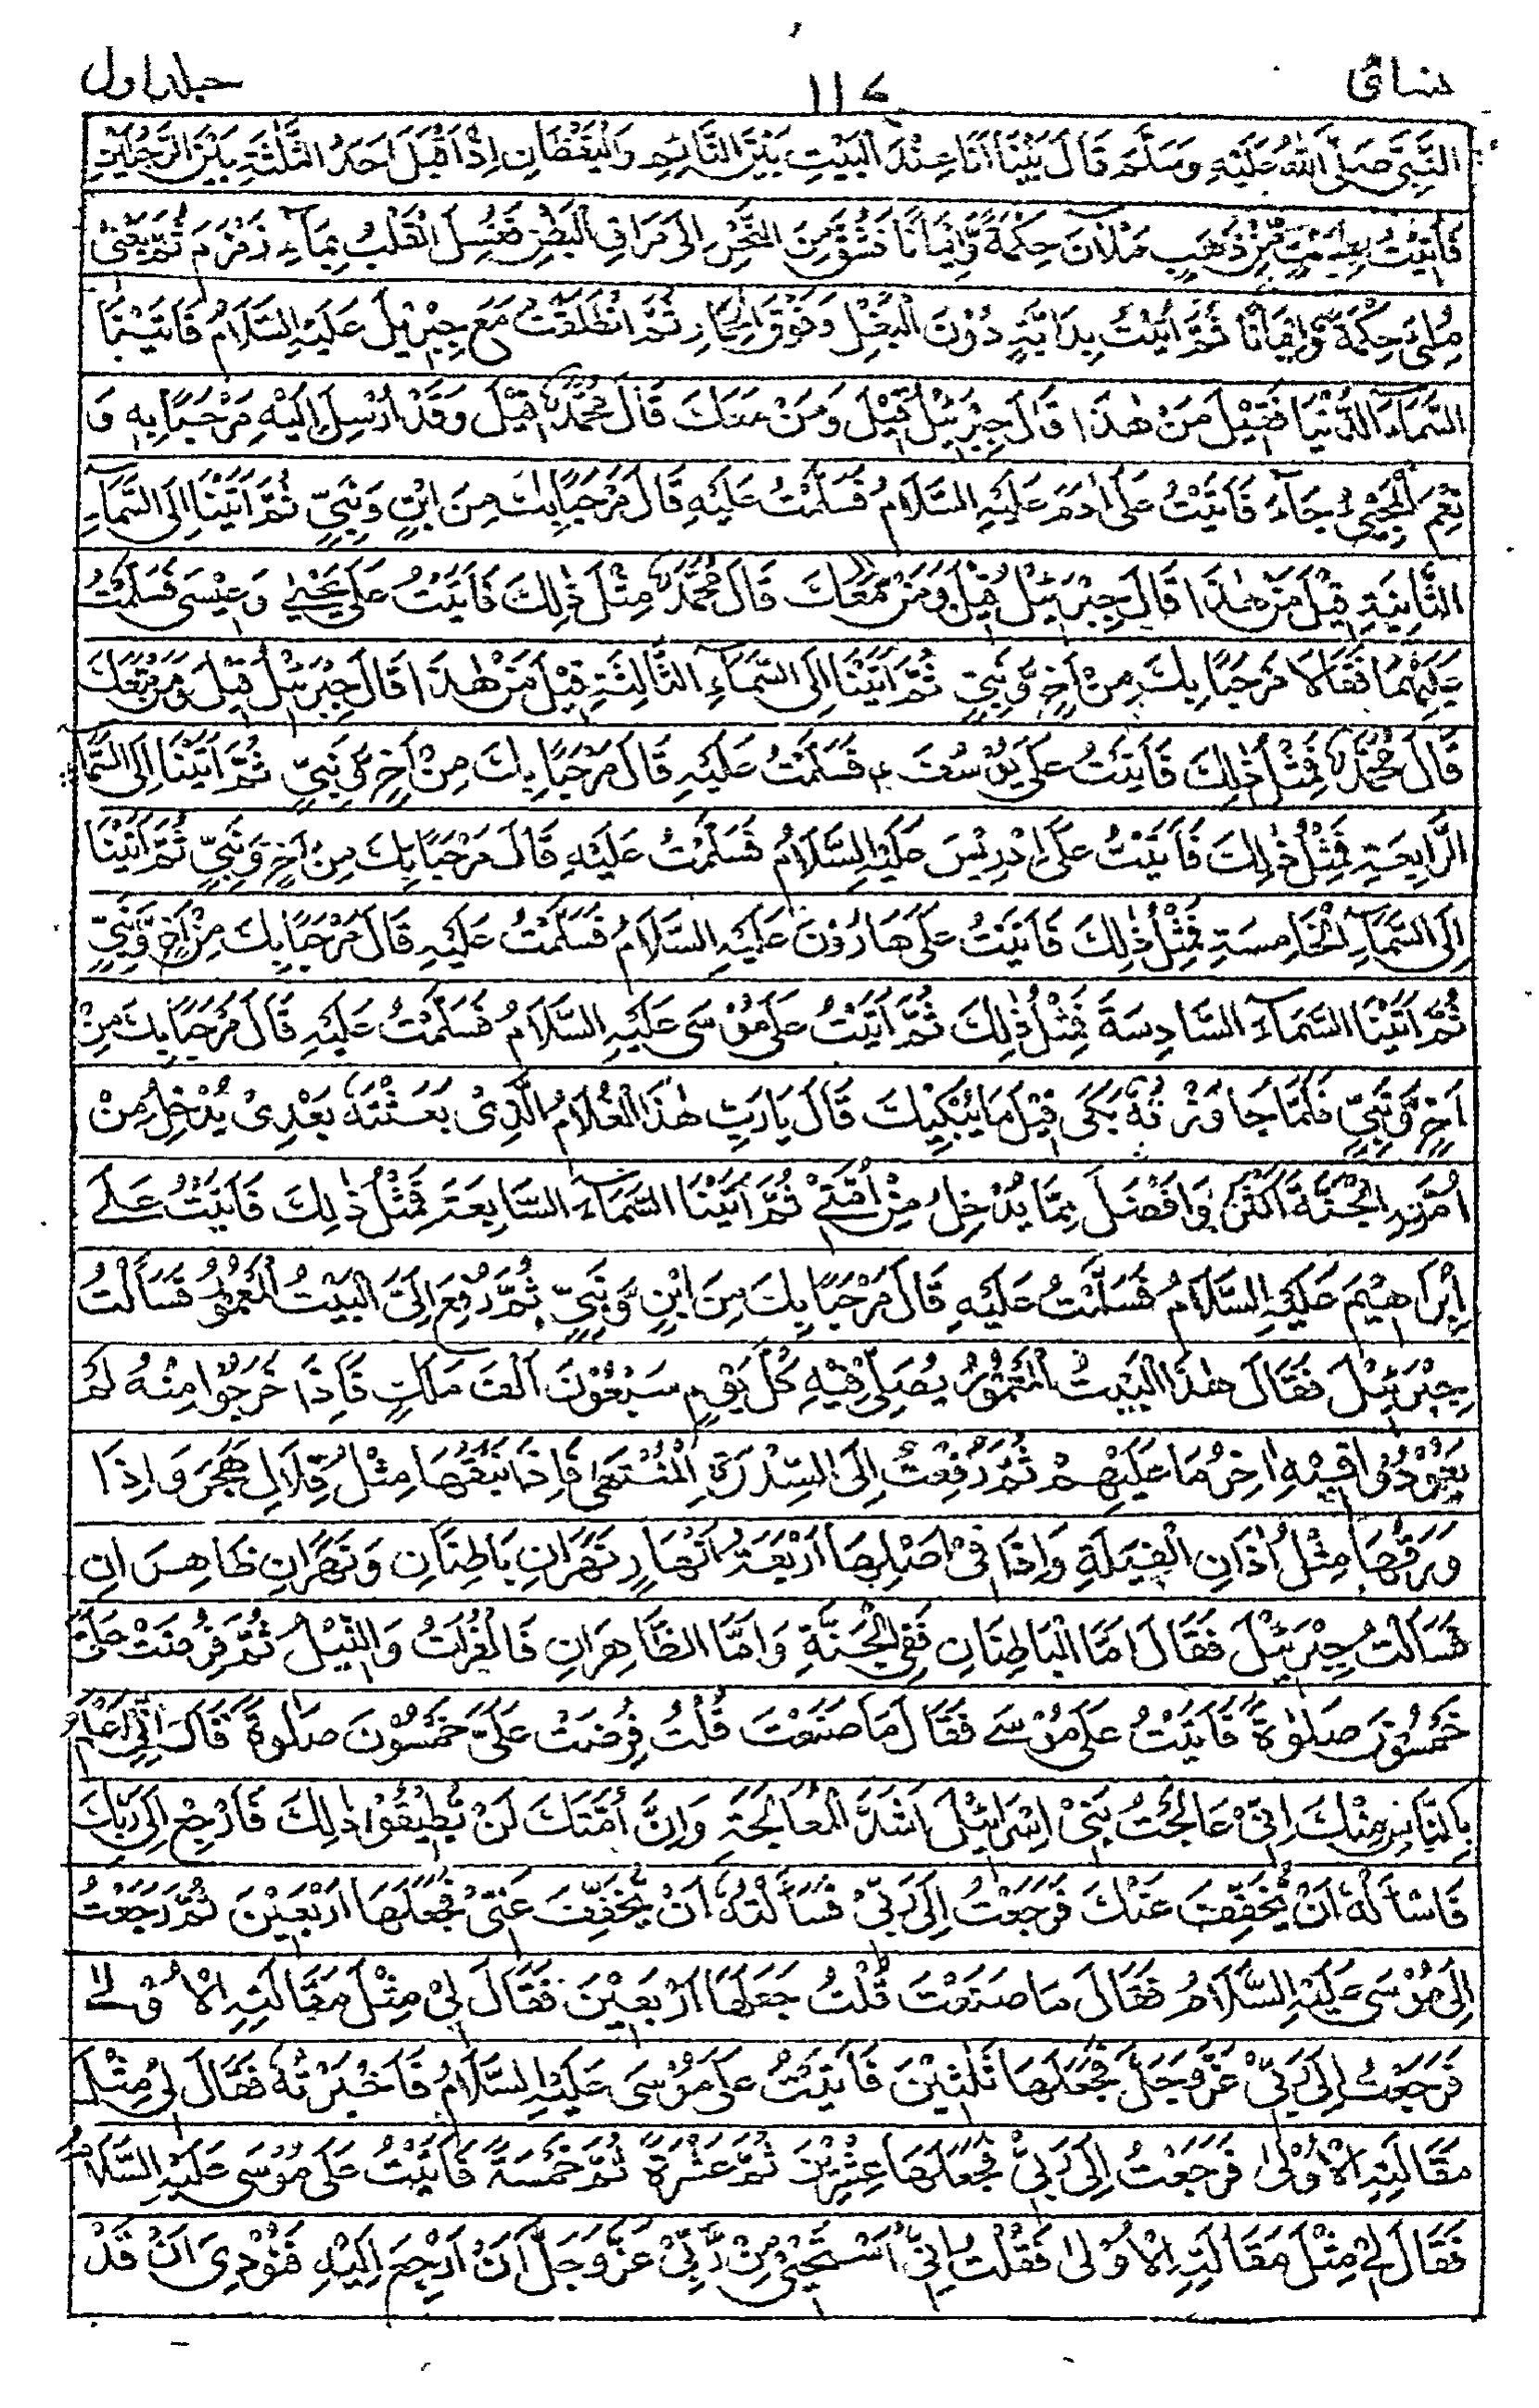 نسائی ۱۱۷ جلد اول
النَّبِيَّ صَلَّى اللهُ عَلَيْهِ وَسَلَّمَ قَالَ بَيْنَا اَنَا عِنْدَ الْبَيْتِ بَيْنَ النَّائِمِ وَالْيَقْظَانِ اِذْ اَقْبَلَ اَحَدُ الثَّلٰثَةِ بَيْنَ الرَّجُلَيْنِ
فَاُتِيْتُ بِطَسْتٍ مِّنْ ذَهَبٍ مَلْاٰنَ حِكْمَةً وَّاِيْمَانًا فَشُقَّ مِنَ النَّحْرِ اِلٰى مَرَاقِ الْبَطْنِ فَغُسِلَ الْقَلْبُ بِمَآءِ زَمْزَمَ ثُمَّ يَعْنِيْ
مُلِئَ حِكْمَةً وَّاِيْمَانًا ثُمَّ اُتِيْتُ بِدَابَّةٍ دُوْنَ الْبَغْلِ وَفَوْقَ الْحِمَارِ ثُمَّ انْطَلَقْتُ مَعَ جِبْرِيْلَ عَلَيْهِ السَّلَامُ فَاَتَيْنَا
السَّمَآءَ الدُّنْيَا فَقِيْلَ مَنْ هٰذَا قَالَ جِبْرَئِيْلُ قِيْلَ وَمَنْ مَعَكَ قَالَ مُحَمَّدٌ قِيْلَ وَقَدْ اُرْسِلَ اِلَيْهِ مَرْحَبًا بِهٖ وَ
نِعْمَ الْمَجِيْئُ جَآءَ فَاَتَيْتُ عَلٰى اٰدَمَ عَلَيْهِ السَّلَامُ فَسَلَّمْتُ عَلَيْهِ قَالَ مَرْحَبًا بِكَ مِنَ ابْنٍ وَنَبِيٍّ ثُمَّ اَتَيْنَا اِلَى السَّمَآءِ
الثَّانِيَةِ قِيْلَ مَنْ هٰذَا قَالَ جِبْرَئِيْلُ قِيْلَ وَمَنْ مَّعَكَ قَالَ مُحَمَّدٌ مِثْلَ ذٰلِكَ فَاَتَيْتُ عَلٰى يَحْيٰے وَعِيْسٰى فَسَلَّمْتُ
عَلَيْهِمَا فَقَالَا مَرْحَبًا بِكَ مِنْ اَخٍ وَّنَبِيٍّ ثُمَّ اَتَيْنَا اِلَى السَّمَآءِ الثَّالِثَةِ قِيْلَ مَنْ هٰذَا قَالَ جِبْرَئِيْلُ قِيْلَ وَمَنْ مَّعَكَ
قَالَ مُحَمَّدٌ فَمِثْلُ ذٰلِكَ فَاَتَيْتُ عَلٰى يُوْسُفَ ؑ فَسَلَّمْتُ عَلَيْهِ قَالَ مَرْحَبًا بِكَ مِنْ اَخٍ وَّنَبِيٍّ ثُمَّ اَتَيْنَا اِلَى السَّمَآءِ
الرَّابِعَةِ فَمِثْلُ ذٰلِكَ فَاَتَيْتُ عَلٰى اِدْرِيْسَ عَلَيْهِ السَّلَامُ فَسَلَّمْتُ عَلَيْهِ قَالَ مَرْحَبًا بِكَ مِنْ اَخٍ وَنَبِيٍّ ثُمَّ اَتَيْنَا
اِلَى السَّمَآءِ الْخَامِسَةِ فَمِثْلُ ذٰلِكَ فَاَتَيْتُ عَلٰى هَارُوْنَ عَلَيْهِ السَّلَامُ فَسَلَّمْتُ عَلَيْهِ قَالَ مَرْحَبًا بِكَ مِنْ اَخٍ وَّنَبِيٍّ
ثُمَّ اَتَيْنَا السَّمَآءَ السَّادِسَةَ فَمِثْلُ ذٰلِكَ ثُمَّ اَتَيْتُ عَلٰى مُوْسٰى عَلَيْهِ السَّلَامُ فَسَلَّمْتُ عَلَيْهِ قَالَ مَرْحَبًا بِكَ مِنْ
اَخٍ وَّنَبِيٍّ فَلَمَّا جَاوَزْتُهٗ بَكٰى قِيْلَ مَا يُبْكِيْكَ قَالَ يَا رَبِّ هٰذَا الْغُلَامُ الَّذِىْ بَعَثْتَهٗ بَعْدِىْ يُدْخِلُ مِنْ
اُمَّتِهِ الْجَنَّةَ اَكْثَرُ وَاَفْضَلَ مِمَّا يُدْخِلُ مِنْ اُمَّتِيْ ثُمَّ اَتَيْنَا السَّمَآءَ السَّابِعَةَ فَمِثْلُ ذٰلِكَ فَاَتَيْتُ عَلٰے
اِبْرَاهِيْمَ عَلَيْهِ السَّلَامُ فَسَلَّمْتُ عَلَيْهِ قَالَ مَرْحَبًا بِكَ مِنَ ابْنٍ وَّنَبِيٍّ ثُمَّ رُفِعَ اِلَيَّ الْبَيْتُ الْمَعْمُوْرُ فَسَاَلْتُ
جِبْرَئِيْلَ فَقَالَ هٰذَا الْبَيْتُ الْمَعْمُوْرُ يُصَلِّىْ فِيْهِ كُلَّ يَوْمٍ سَبْعُوْنَ اَلْفَ مَلَكٍ فَاِذَا خَرَجُوْا مِنْهُ لَمْ
يَعُوْدُوْا فِيْهِ اٰخِرُ مَا عَلَيْهِمْ ثُمَّ رُفِعَتْ اِلَى السِّدْرَةِ الْمُنْتَهٰى فَاِذَا نَبْقُهَا مِثْلُ قِلَالِ هَجَرَ وَاِذَا
وَرَقُهَا مِثْلُ اٰذَانِ الْفِيَلَةِ وَاِذَا فِيْ اَصْلِهَا اَرْبَعَةُ اَنْهَارٍ نَهْرَانِ بَاطِنَانِ وَنَهْرَانِ ظَاهِرَانِ
فَسَاَلْتُ جِبْرَئِيْلَ فَقَالَ اَمَّا الْبَاطِنَانِ فَفِى الْجَنَّةِ وَاَمَّا الظَّاهِرَانِ فَالْفُرَاتُ وَالنِّيْلُ ثُمَّ فُرِضَتْ عَلَيَّ
خَمْسُوْنَ صَلٰوةً فَاَتَيْتُ عَلٰى مُوْسٰے فَقَالَ مَا صَنَعْتَ قُلْتُ فُرِضَتْ عَلَيَّ خَمْسُوْنَ صَلٰوةً قَالَ اِنِّيْ اَعْلَمُ
بِالنَّاسِ مِنْكَ اِنِّيْ عَالَجْتُ بَنِيْ اِسْرَائِيْلَ اَشَدَّ الْمُعَالَجَةِ وَاِنَّ اُمَّتَكَ لَنْ يُّطِيْقُوْا ذٰلِكَ فَارْجِعْ اِلٰى رَبِّكَ
فَاسْاَلْهُ اَنْ يُّخَفِّفَ عَنْكَ فَرَجَعْتُ اِلٰى رَبِّيْ فَسَاَلْتُهٗ اَنْ يُّخَفِّفَ عَنِّيْ فَجَعَلَهَا اَرْبَعِيْنَ ثُمَّ رَجَعْتُ
اِلٰى مُوْسٰى عَلَيْهِ السَّلَامُ فَقَالَ مَا صَنَعْتَ قُلْتُ جَعَلَهَا اَرْبَعِيْنَ فَقَالَ لِيْ مِثْلَ مَقَالَتِهِ الْاُوْلٰے
فَرَجَعْتُ اِلٰى رَبِّيْ عَزَّ وَجَلَّ فَجَعَلَهَا ثَلٰثِيْنَ فَاَتَيْتُ عَلٰى مُوْسٰى عَلَيْهِ السَّلَامُ فَاَخْبَرْتُهٗ فَقَالَ لِيْ مِثْلَ
مَقَالَتِهِ الْاُوْلٰى فَرَجَعْتُ اِلٰى رَبِّيْ فَجَعَلَهَا عِشْرِيْنَ ثُمَّ عَشْرَةً ثُمَّ خَمْسَةً فَاَتَيْتُ عَلٰى مُوْسٰى عَلَيْهِ السَّلَامُ
فَقَالَ لِيْ مِثْلَ مَقَالَتِهِ الْاُوْلٰى فَقُلْتُ اِنِّيْ اَسْتَحْيِيْ مِنْ رَّبِّيْ عَزَّ وَجَلَّ اَنْ اَرْجِعَ اِلَيْهِ فَنُوْدِىَ اَنْ قَدْ